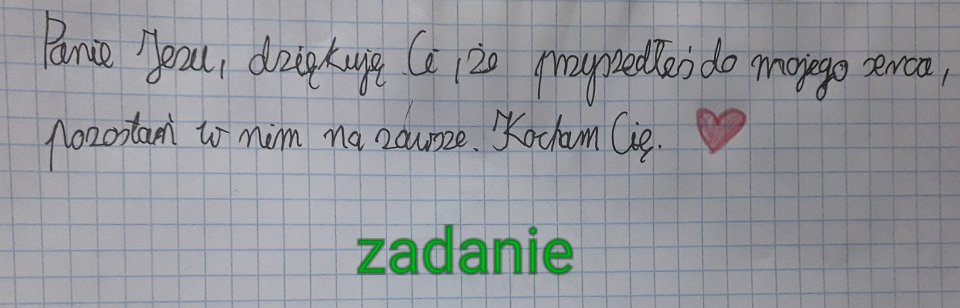 Panie Jezu, dziękuję Ci, że przyszedłeś do mojego serca,
pozostań w nim na zawsze. Kocham Cię.
zadanie